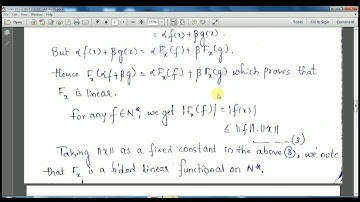 = αf(x)+βg(x).
But αf(x)+βg(x) = αFx(f)+βFx(g).
Hence Fx(αf+βg) = αFx(f)+βFx(g) which proves that
Fx is linear.
For any f∈N*, we get |Fx(f)| = |f(x)|
≤ ‖f‖.‖x‖
(3)
Taking ‖x‖ as a fixed constant in the above (3), we note
that Fx is a bdd linear functional on N*.